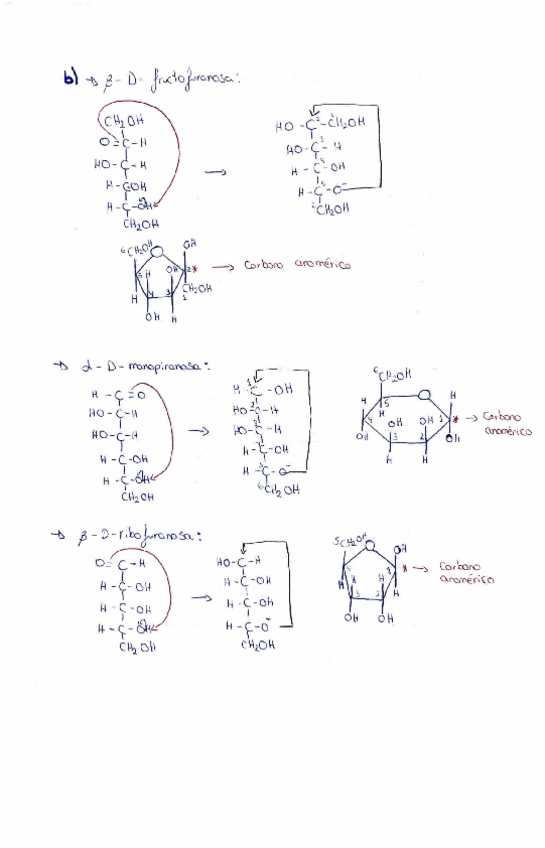 b) → β - D - fructofuranosa:
CH₂OH
O = C - H
HO - C - H
H - C - OH
H - C - OH
CH₂OH
→
HO - C² - ¹CH₂OH
HO - C³ - H
H - C - OH
H - C⁵ - O⁻
⁶CH₂OH
⁶CH₂OH O OH
5 H OH 2 * → Carbono anomérico
H 4 3 CH₂OH
1
OH H
→ α - D - manopiranosa:
H - C = O
HO - C - H
HO - C - H
H - C - OH
H - C - OH
CH₂OH
→
H - C¹ - OH
HO - C² - H
HO - C³ - H
H - C - OH
H - C⁵ - O⁻
⁶CH₂OH
⁶CH₂OH
H 5 O H
4 H OH OH 1 * → Carbono
anomérico
OH 3 2 OH
H H
→ β - D - ribofuranosa:
O = C - H
H - C - OH
H - C - OH
H - C - OH
CH₂OH
→
HO - C - H
H - C - OH
H - C - OH
H - C - O⁻
CH₂OH
5CH₂OH O OH
* → Carbono
anomérico
H H H H
3 2
OH OH